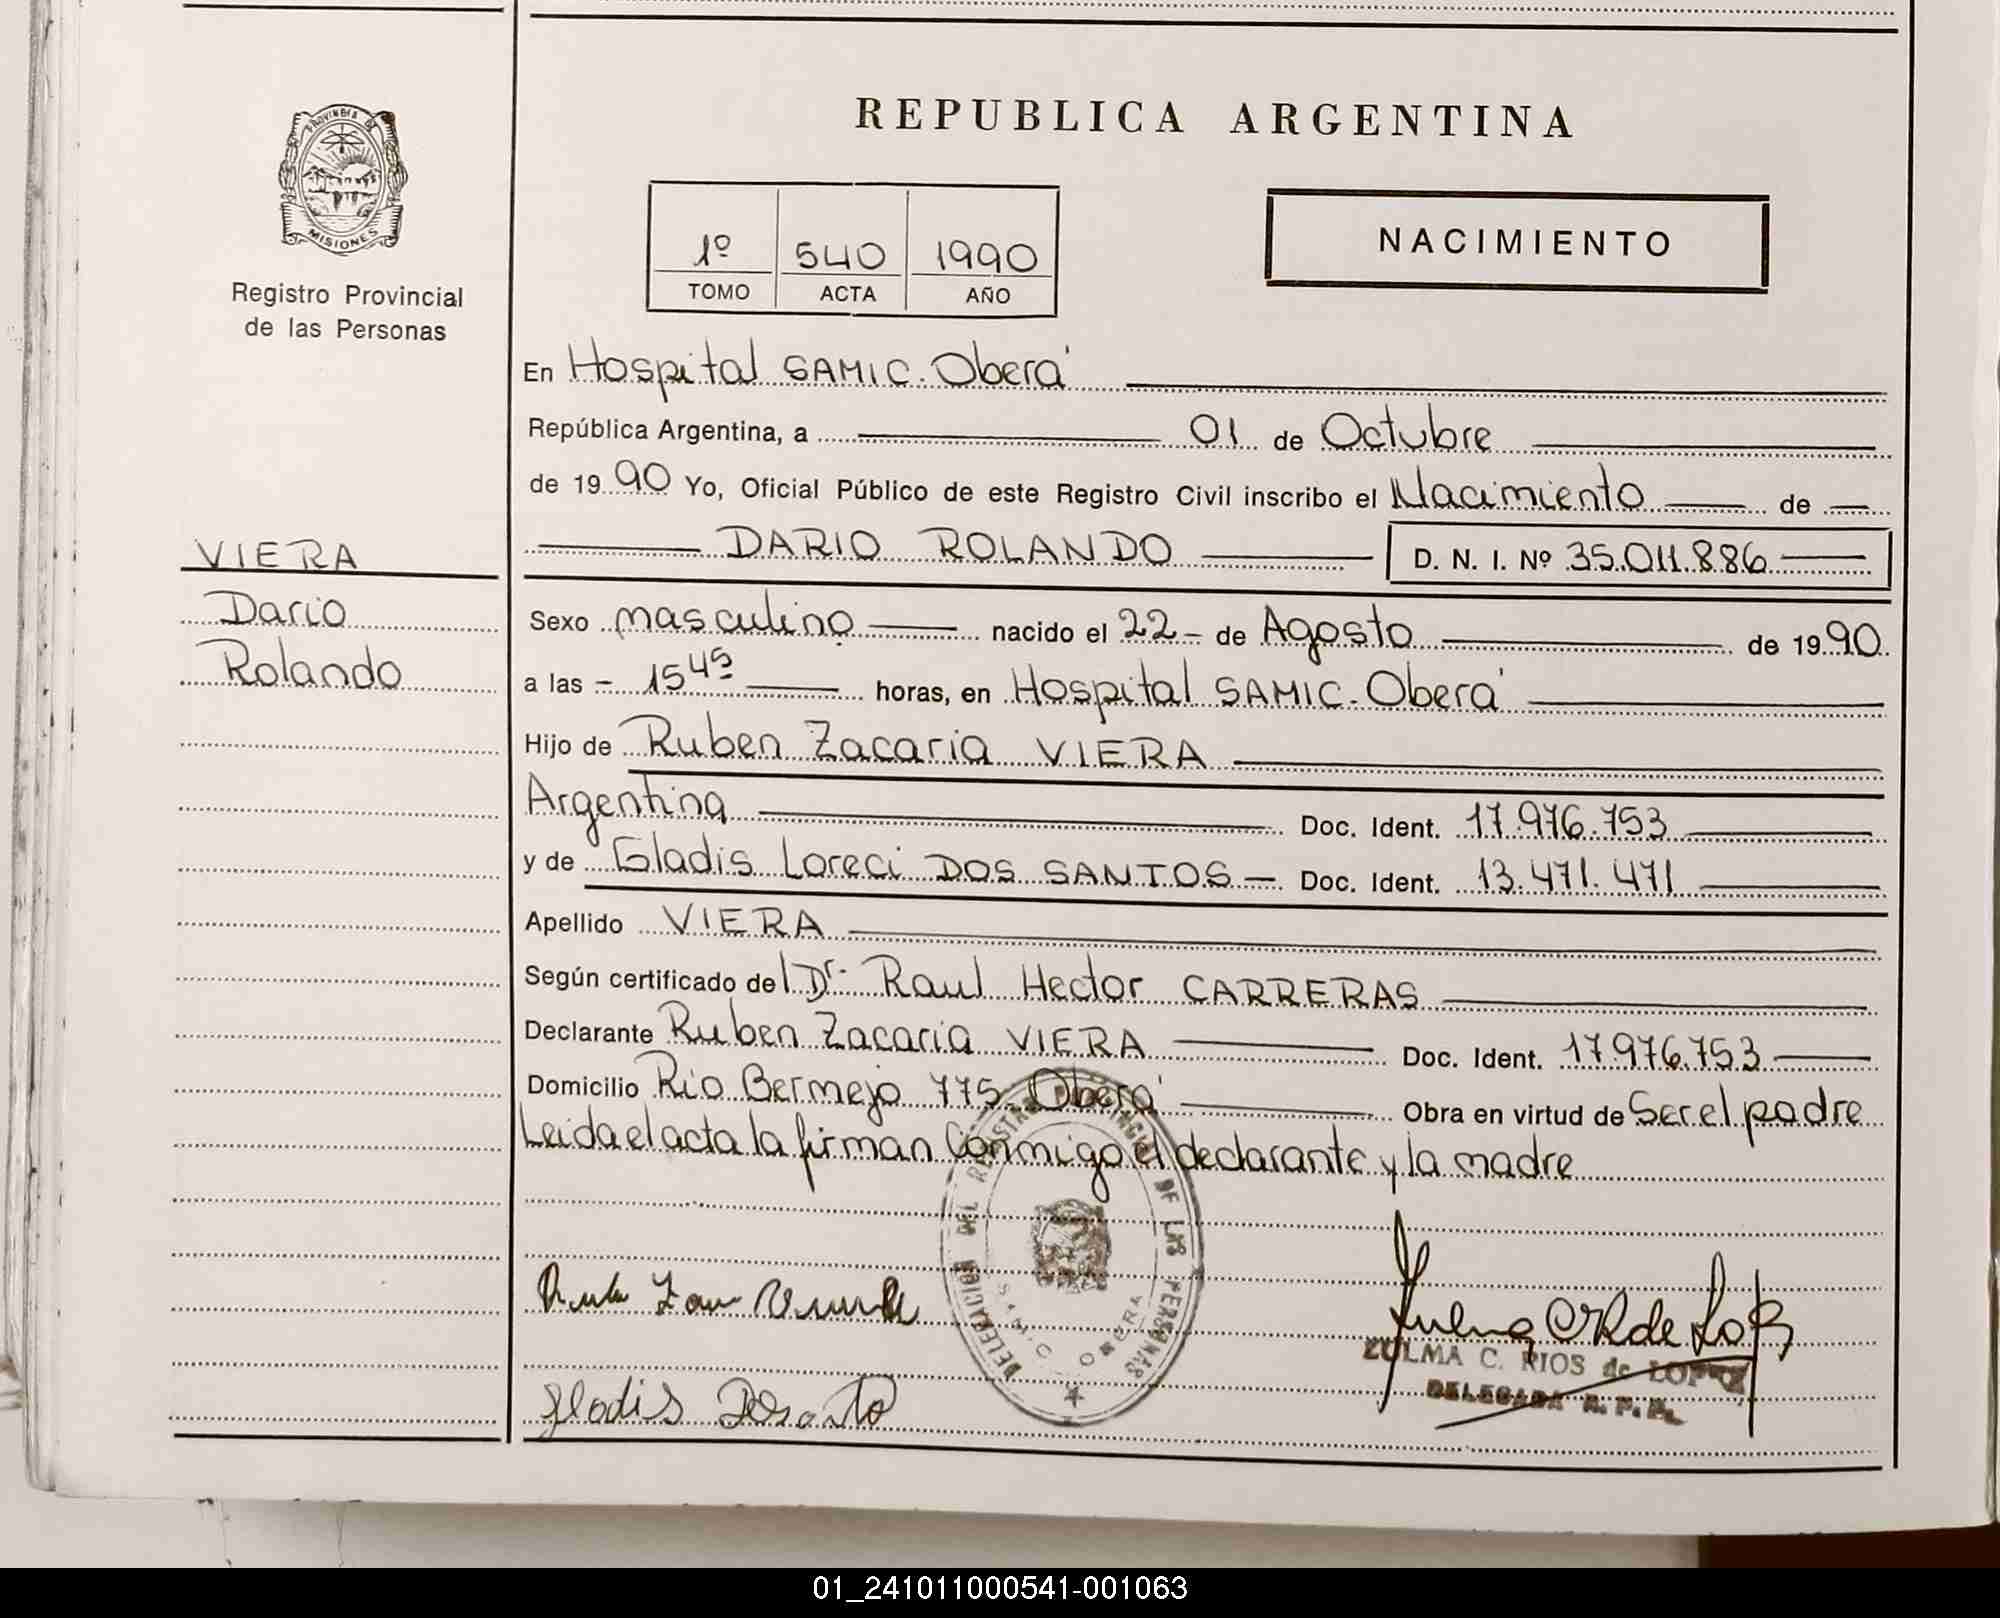 REPUBLICA ARGENTINA
PROVINCIA DE
MISIONES
Registro Provincial
de las Personas
1º 540 1990
TOMO ACTA AÑO
NACIMIENTO
En Hospital SAMIC. Oberá
República Argentina, a 01 de Octubre
de 1990 Yo, Oficial Público de este Registro Civil inscribo el Nacimiento de
DARIO ROLANDO D. N. I. Nº 35.011.886
VIERA
Dario
Rolando
Sexo masculino nacido el 22 - de Agosto de 1990
a las - 15 45 horas, en Hospital SAMIC. Oberá
Hijo de Ruben Zacaria VIERA
Argentina Doc. Ident. 17.976.753
y de Gladis Loreci DOS SANTOS - Doc. Ident. 13.471.471
Apellido VIERA
Según certificado del Dr. Raul Hector CARRERAS
Declarante Ruben Zacaria VIERA Doc. Ident. 17.976.753
Domicilio Rio Bermejo 775. Oberá Obra en virtud de Ser el padre
Leida el acta la firman Conmigo el declarante y la madre
DELEGACION DEL REGISTRO PROVINCIAL DE LAS PERSONAS
OBERA
ZULMA C. RIOS de LOPEZ
DELEGADA R. P. P.
Gladis
01_241011000541-001063